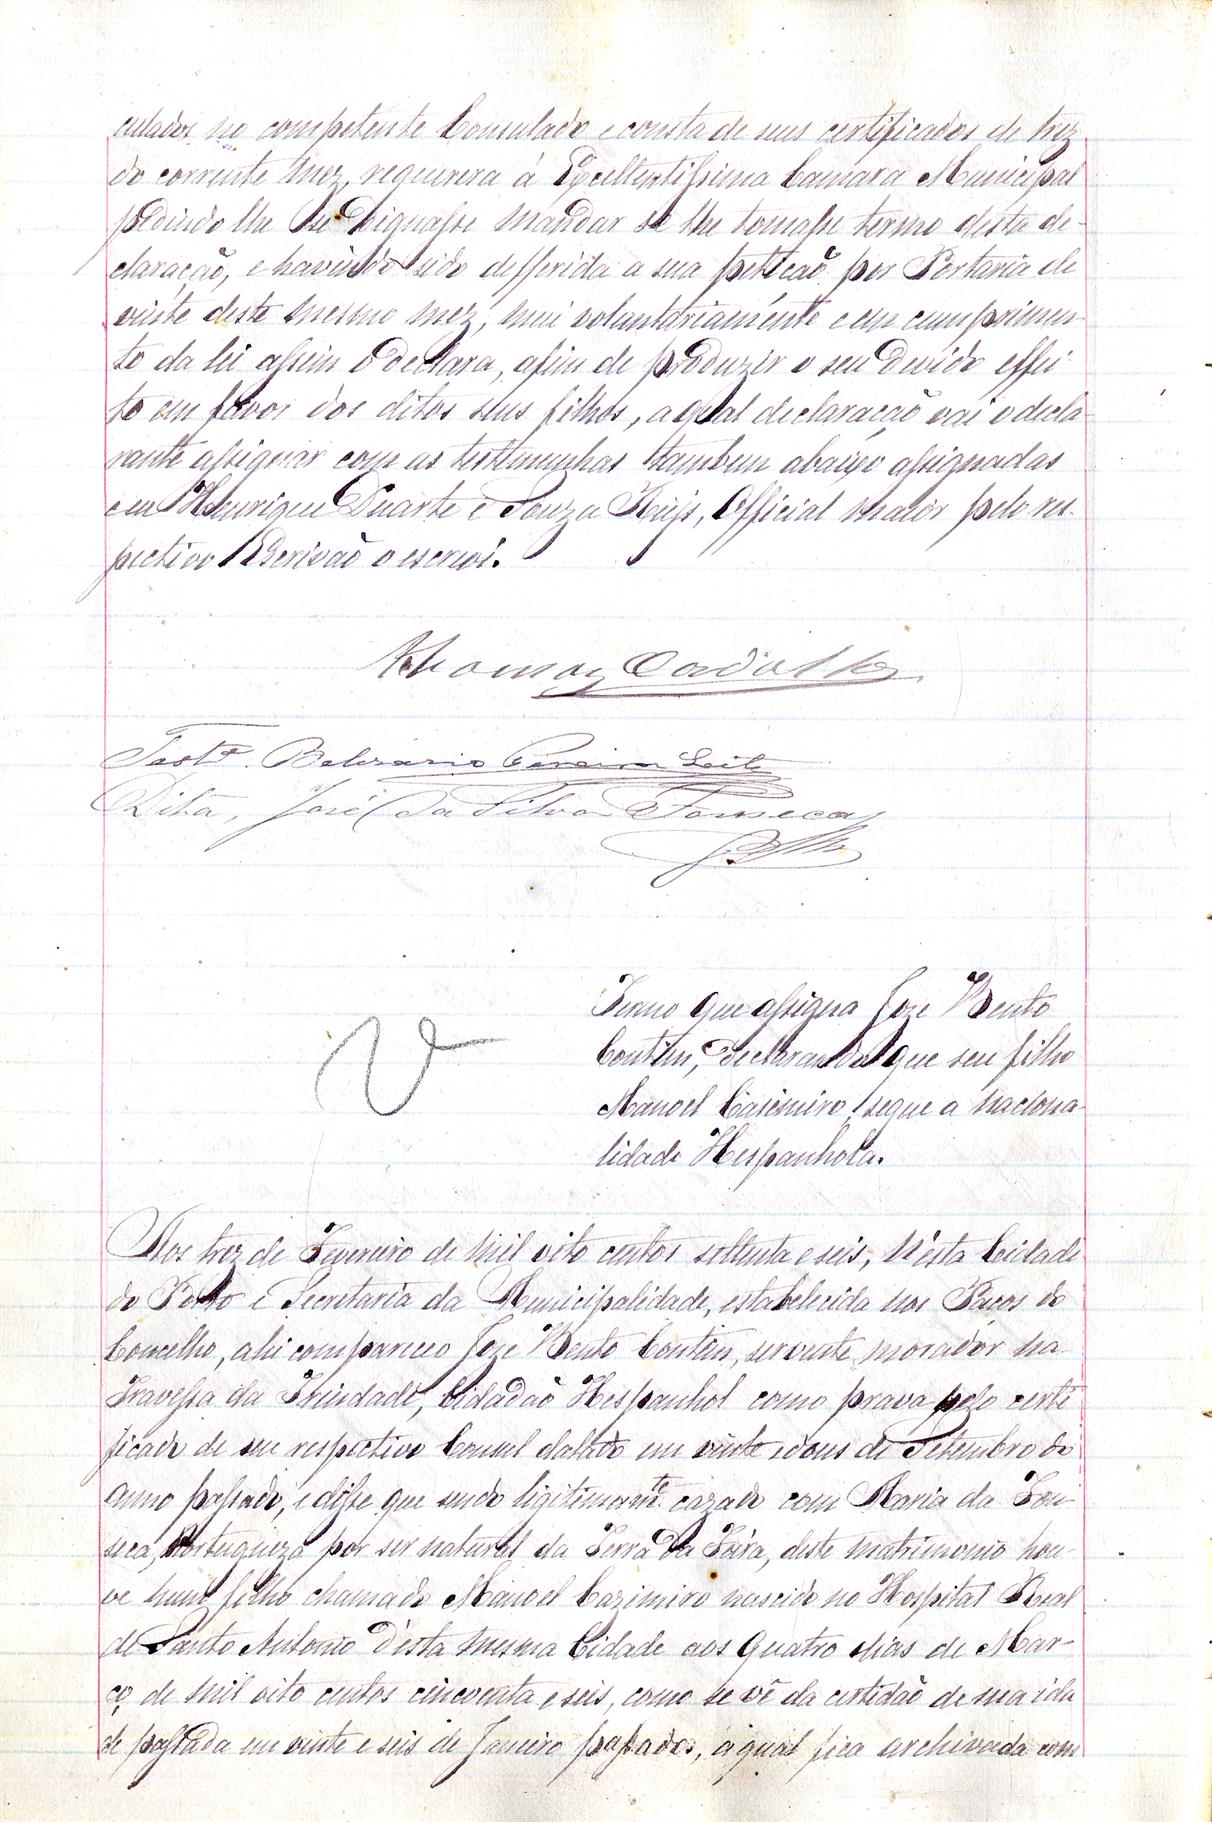 culados no competente Consulado e consta de seus certificados de trez
do corrente mez, requerera á Excellentissima Camara Municipal
pedindo lhe se dignasse mandar se lhe tomasse termo desta de-
claração, e havendo sido defferida a sua petição por Portaria de
vinte deste mesmo mez, mui voluntariamente e em cumprimen-
to da lei assim o declara, afim de produzir o seu devido effei
to em favor dos ditos seus filhos, a qual declaração vai o decla
rante assignar com as testimunhas tambem abaixo assignadas
eu Henrique Duarte e Souza Reis, Official maior pelo res
pectivo Escrivão o escrevi.
Testª. Belizario Pereira Leite
Dita, José da Silva Fonseca
Termo que assigna Joze Bento
Contin, declarando que seu filho
Manoel Casimiro, segue a naciona-
lidade Hespanhola.
Aos trez de Fevereiro de mil oito centos settenta e seis, n'esta Cidade
do Porto e Secretaria da Municipalidade, estabelecida nos Paços do
Concelho, ahi compareceo Joze Bento Contin, servente, morador na
Travessa da Trindade, Cidadão Hespanhol como prova pelo certi
ficado de seu respectivo Consul datado em vinte e dous de Setembro do
anno passado, e disse que sendo legitimamte. cazado com Maria da Fon
seca, Portugueza por ser natural da Terra da Feira, deste matrimonio hou-
ve hum filho chamado Manoel Cazimiro nascido no Hospital Real
de Santo Antonio d'esta mesma Cidade aos quatro dias de Mar-
ço, de mil oito centos cincoenta e seis, como se vê da certidão de sua ida
de passada em vinte e seis de Janeiro passados, a qual fica archivada com